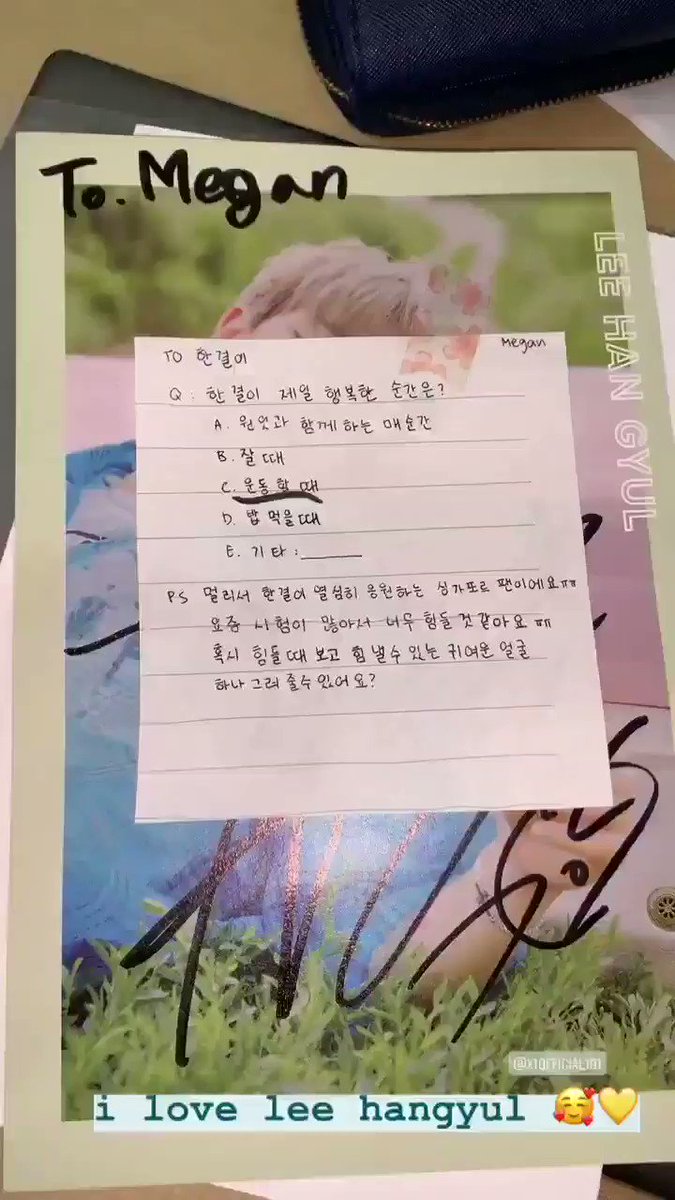 To. Megan
LEE HAN GYUL
TO 한결이
Megan
Q : 한결이 제일 행복한 순간은?
A. 원잇과 함께 하는 매순간
B. 잘 때
C. 운동 할 때
D. 밥 먹을때
E. 기타 : ______
PS 멀리서 한결이 열심히 응원하는 싱가포르 팬이에요ㅠㅠ
요즘 시험이 많아서 너무 힘들 것 같아요 ㅠㅠ
혹시 힘들때 보고 힘 낼수 있는 귀여운 얼굴
하나 그려 줄수 있어요?
@X1OFFICIAL101
i love lee hangyul 🥰💛